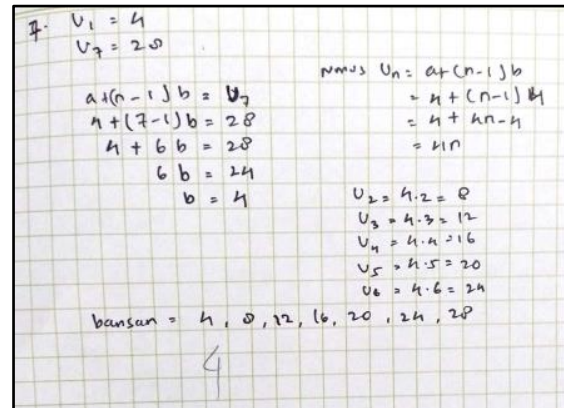 7. U₁ = 4
U₇ = 28
a+(n-1)b = U₇
4+(7-1)b = 28
4 + 6b = 28
6b = 24
b = 4
rumus Uₙ = a+(n-1)b
= 4 + (n-1)4
= 4 + 4n-4
= 4n
U₂ = 4.2 = 8
U₃ = 4.3 = 12
U₄ = 4.4 = 16
U₅ = 4.5 = 20
U₆ = 4.6 = 24
barisan = 4, 8, 12, 16, 20, 24, 28
4